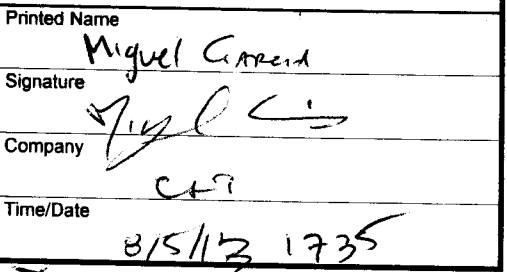 Printed Name
Miguel Garcia
Signature
Company
Time/Date
8/5/13 1735